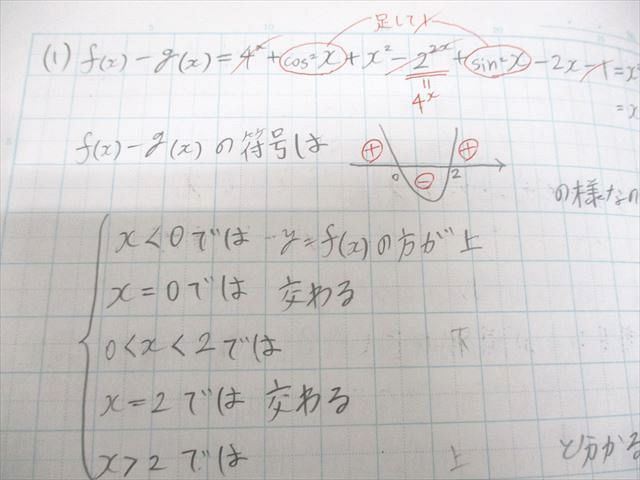 足して1
(1) f(x)-g(x)=4^x+cos²x+x²-2^{2x}+sin²x-2x-1=x²
=x
॥
4^x
f(x)-g(x)の符号は
⊕ ⊕
0 ⊖ 2
の様なの
x<0では y=f(x)の方が上
x=0では 交わる
0<x<2では
x=2では 交わる
x>2では 上 と分かる